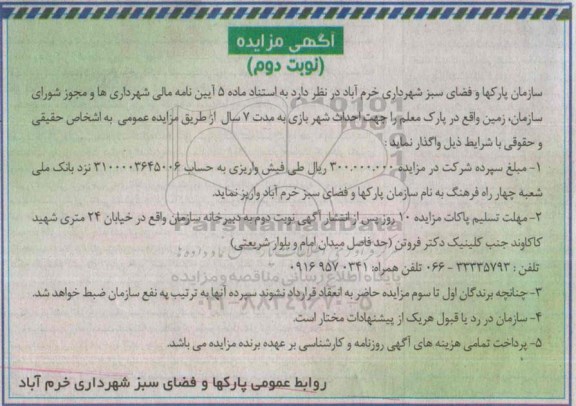 آگهی مزایده
(نوبت دوم)
سازمان پارکها و فضای سبز شهرداری خرم آباد در نظر دارد به استناد ماده ۵ آیین نامه مالی شهرداری ها و مجوز شورای
سازمان، زمین واقع در پارک معلم را جهت احداث شهر بازی به مدت ۷ سال از طریق مزایده عمومی به اشخاص حقیقی
و حقوقی با شرایط ذیل واگذار نماید :
۱- مبلغ سپرده شرکت در مزایده ۳۰۰.۰۰۰.۰۰۰ ریال طی فیش واریزی به حساب ۳۱۰۰۰۰۳۶۴۵۰۰۶ نزد بانک ملی
شعبه چهار راه فرهنگ به نام سازمان پارکها و فضای سبز خرم آباد واریز نماید.
۲- مهلت تسلیم پاکات مزایده ۱۰ روز پس از انتشار آگهی نوبت دوم به دبیرخانه سازمان واقع در خیابان ۲۴ متری شهید
کاکاوند جنب کلینیک دکتر فروتن (حد فاصل میدان امام و بلوار شریعتی)
تلفن : ۳۳۳۳۵۷۹۳ - ۰۶۶ تلفن همراه: ۰۹۱۶ ۹۵۷۰۳۴۱
۳- چنانچه برندگان اول تا سوم مزایده حاضر به انعقاد قرارداد نشوند سپرده آنها به ترتیب به نفع سازمان ضبط خواهد شد.
۴- سازمان در رد یا قبول هریک از پیشنهادات مختار است.
۵- پرداخت تمامی هزینه های آگهی روزنامه و کارشناسی بر عهده برنده مزایده می باشد.
روابط عمومی پارکها و فضای سبز شهرداری خرم آباد
ParsNamadData
پایگاه اطلاع رسانی مناقصه و مزایده